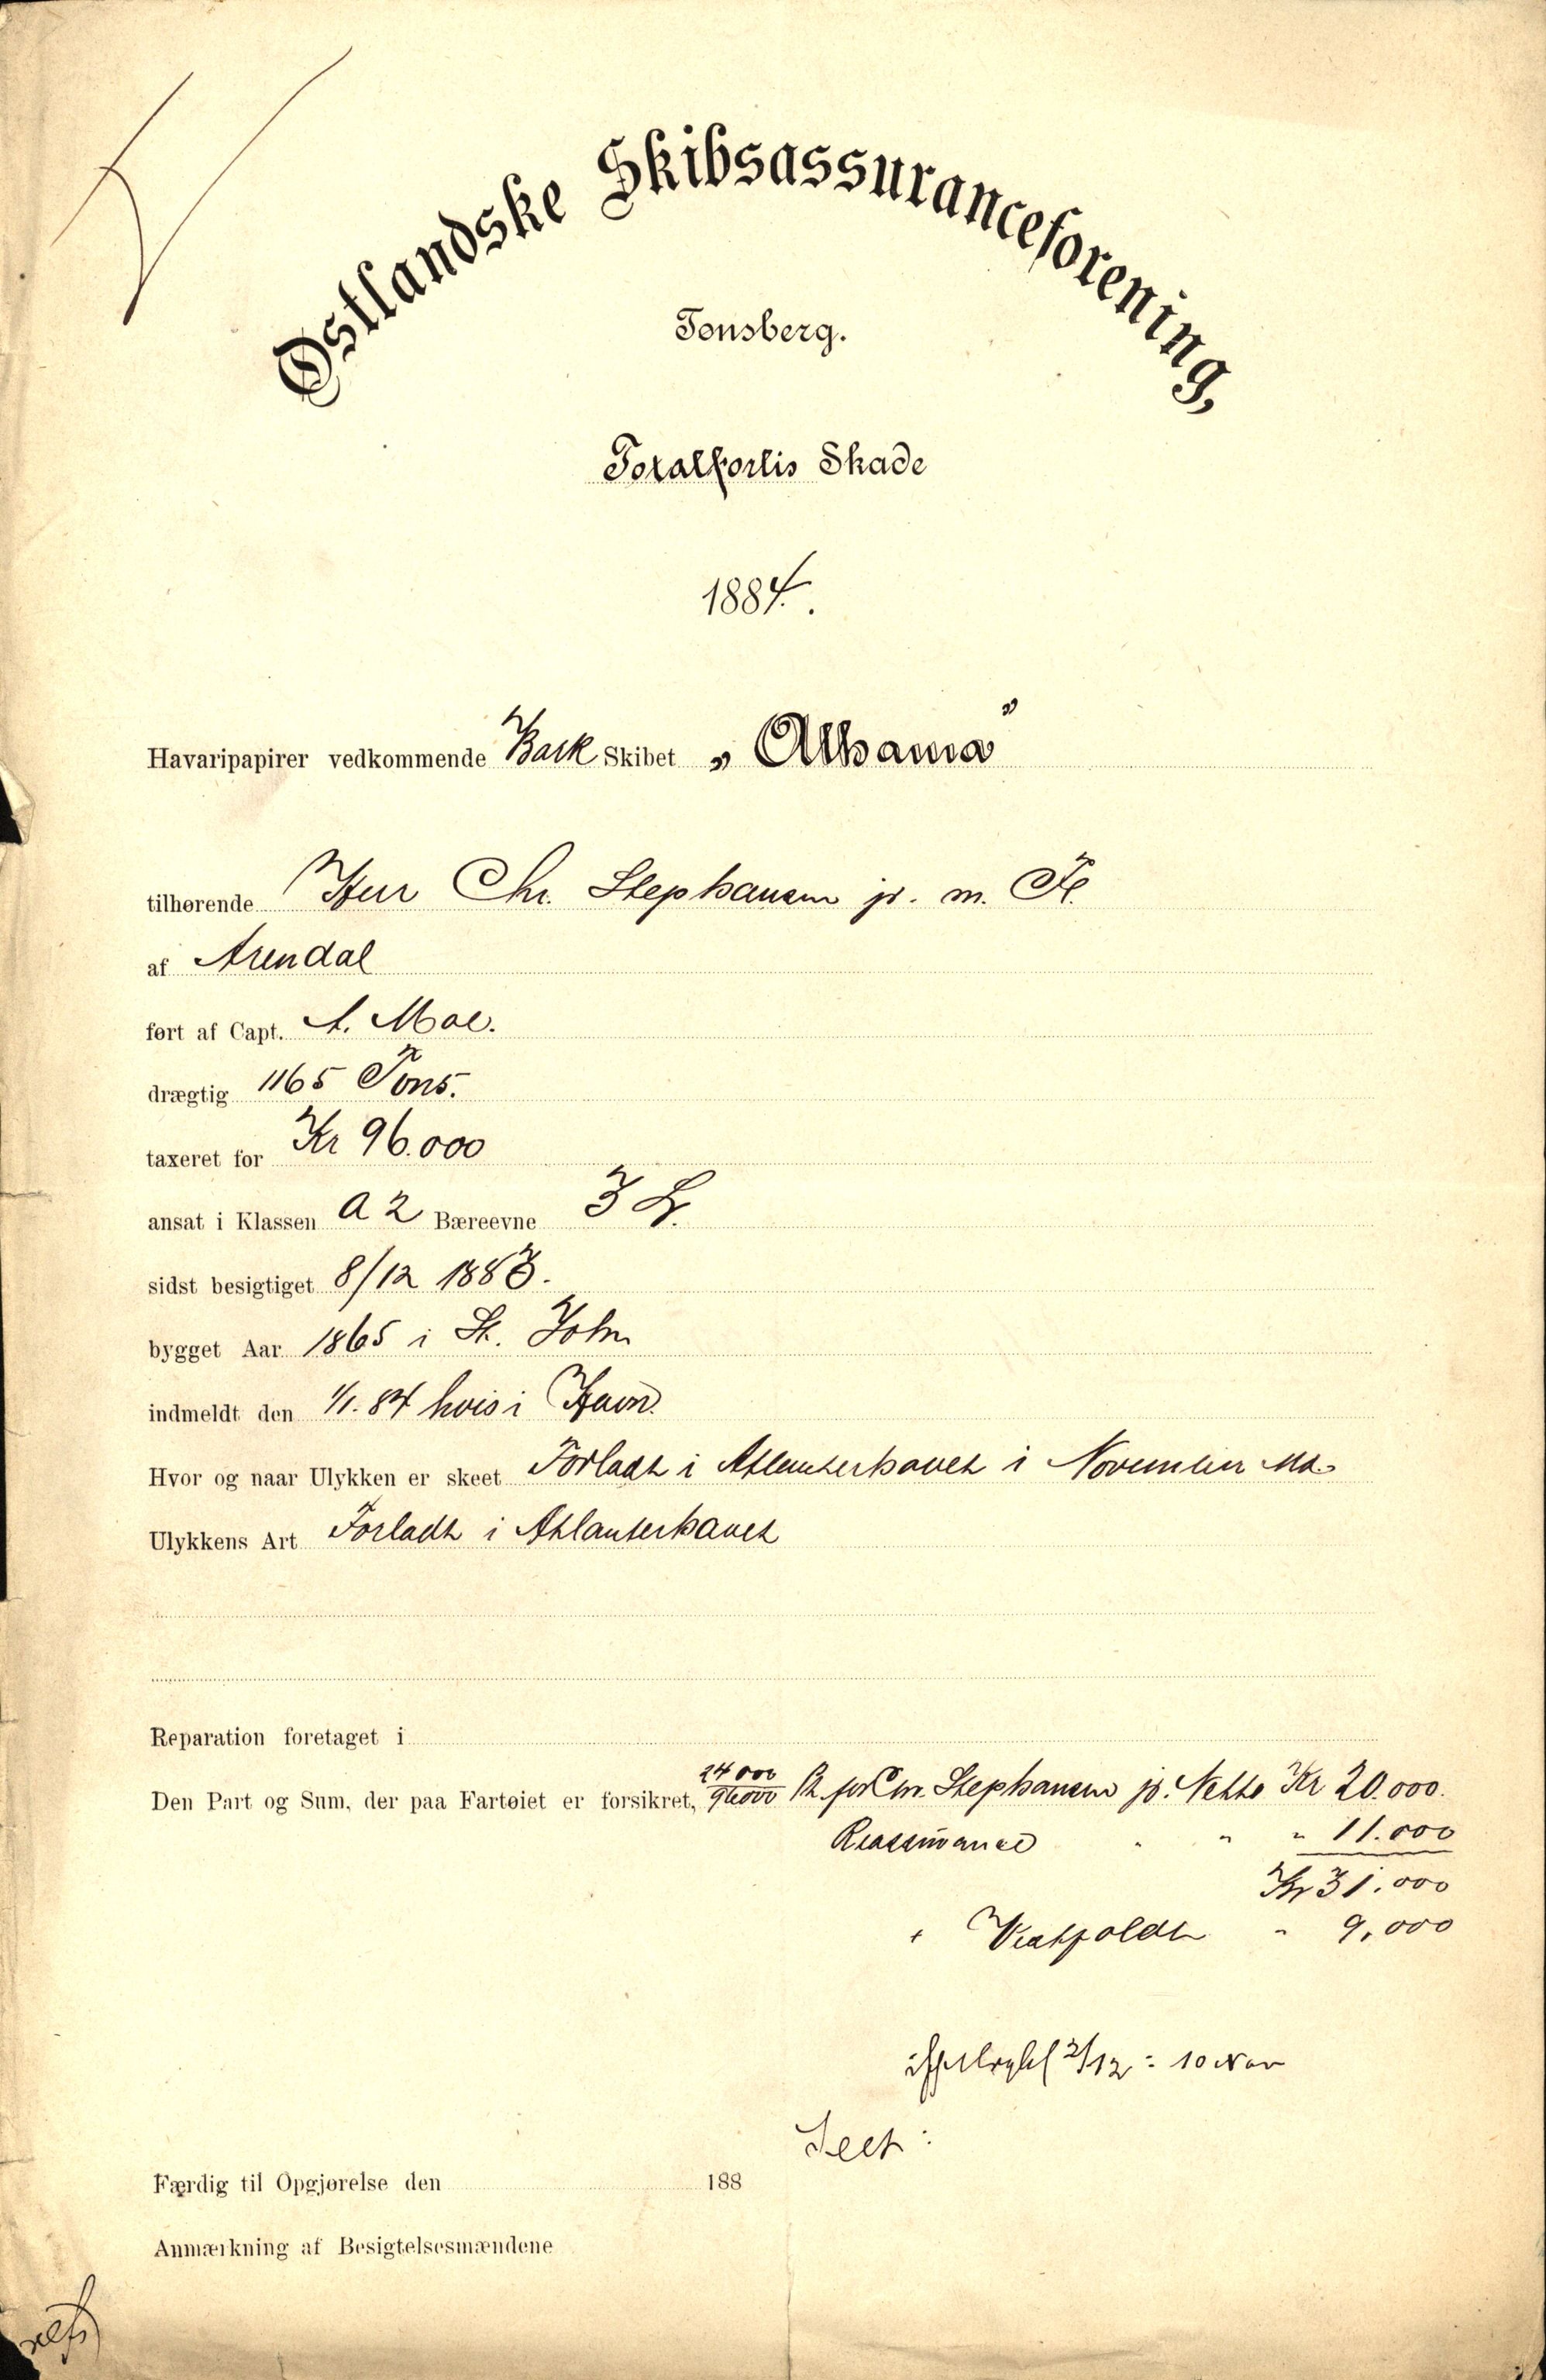 Østlandske Skibsassuranceforening,
Tønsberg.
Totalforlis Skade
1884.
Havaripapirer vedkommende Bark Skibet „Alhama”
tilhørende Herr Chr. Stephansen jr. m. Fl.
af Arendal
ført af Capt. A. Moe.
drægtig 1165 Tons.
taxeret for Kr 96.000
ansat i Klassen A 2 Bæreevne 3 L.
sidst besigtiget 8/12 1883.
bygget Aar 1865 i St. John
indmeldt den 1/1. 84 hvis i Havn.
Hvor og naar Ulykken er skeet Forladt i Atlanterhavet i November Md.
Ulykkens Art Forladt i Atlanterhavet
Reparation foretaget i
Den Part og Sum, der paa Fartøiet er forsikret, 24000/96000 Pt. for Chr. Stephansen jr. Netto Kr 20.000.
Reassurance " " " 11.000
Kr 31.000
" Vestfoldt " 9,000
2/12 : 10 Nov
Seet :
Færdig til Opgjørelse den 188
Anmærkning af Besigtelsesmændene